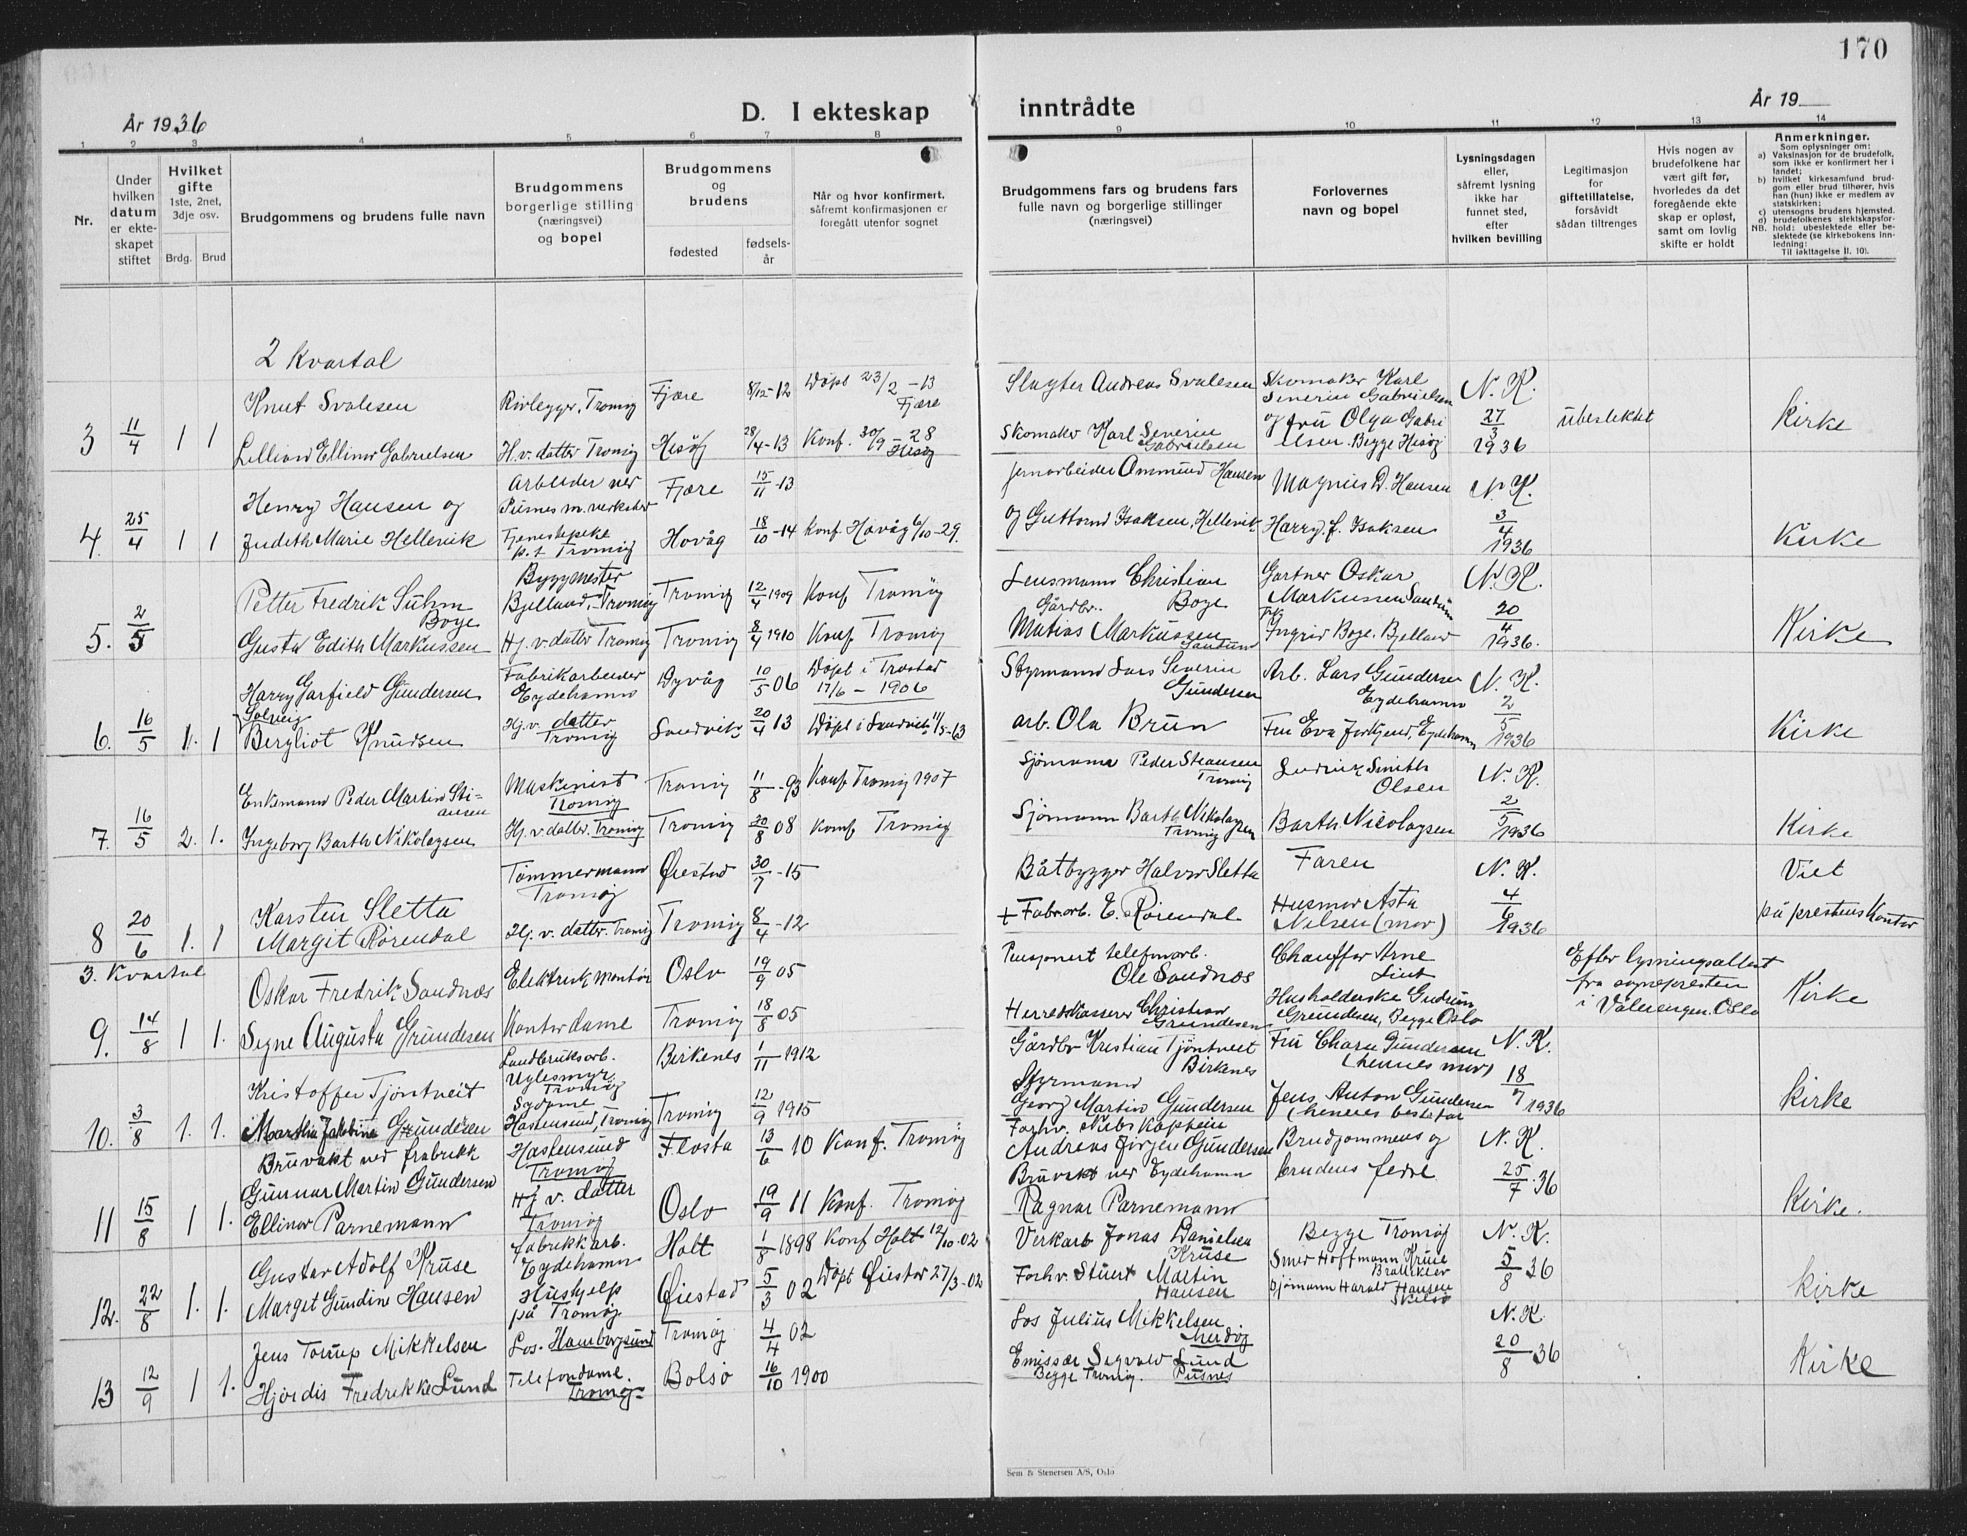 170
År 1936
D. I ekteskap inntrådte
År 19
1 2 3 4 5 6 7 8 9 10 11 12 13 14
Nr.
Under hvilken datum er ekteskapet stiftet
Hvilket gifte
1ste, 2net, 3dje osv.
Brdg. Brud
Brudgommens og brudens fulle navn
Brudgommens borgerlige stilling (næringsvei) og bopel
Brudgommens og brudens
fødested
fødselsår
Når og hvor konfirmert, såfremt konfirmasjonen er foregått utenfor sognet
Brudgommens fars og brudens fars fulle navn og borgerlige stillinger (næringsvei)
Forlovernes navn og bopel
Lysningsdagen eller, såfremt lysning ikke har funnet sted, efter hvilken bevilling
Legitimasjon for giftetillatelse, forsåvidt sådan tiltrenges
Hvis nogen av brudefolkene har vært gift før, hvorledes da det foregående ekteskap er opløst, samt om lovlig skifte er holdt
Anmerkninger.
Som oplysninger om:
a) Vaksinasjon for de brudefolk, som ikke er konfirmert her i landet;
b) hvilket kirkesamfund brudgom eller brud tilhører, hvis han (hun) ikke er medlem av statskirken;
c) utensogns brudens hjemsted.
d) brudefolkenes slektskapsforhold: ubeslektede eller beslektede (se kirkebokens innledning:
NB.
Til iakttagelse II. 10).
2 Kvartal
3 11/4 1 1
Knut Svalesen
Rørlegger, Tromøy Fjære 8/12-12 Døpt 23/2-13 Fjære
Slagter Andreas Svalesen
Skomaker Karl Severin Gabrielsen og fru Olga Gabrielsen. Begge Hisøy
N. K. 27/3 1936
ubeslektet
Kirke
Lillian Ellinor Gabrielsen
H. v. datter Tromøy Hisøy 28/4-13 Konf. 30/9-28 Hisøy
Skomaker Karl Severin Gabrielsen
4. 25/4 1 1
Henry Hansen og
Arbeider ved Pusnes m. verksted Fjære 15/11-13
Jernarbeider Ommund Hansen
Magnus D. Hansen
N. K. 3/4 1936
Kirke
Judith Marie Hellevik
Tjenestepike p.t Tromøy Hovåg 18/10-14 Konf Hovåg 6/10-29.
og Guttorm Isaksen, Hellevik
Harry f. Isaksen
5. 2/5
Petter Fredrik Suhm Boye
Byggmester Bjelland, Tromøy Tromøy 12/4 1909 Konf Tromøy
Lensmann Christian Boye
Gartner Oskar Markussen Sandum
N. K. 20/4 1936.
Kirke
Gusta Edith Markussen
Hj. v. datter Tromøy Tromøy 8/4 1910 Konf Tromøy
Gårdbr. Matias Markussen Sandum
frk Ingrid Boye. Bjelland
6. 16/5 1. 1
Harry Garfield Gundersen
Fabrikarbeider Eydehamn Dyvåg 10/5 06 Døpt i Træstad 17/6-1906
Styrmann Lars Severin Gundersen
Arb. Lars Gundersen Eydehamn
N. K. 2/5 1936
Kirke
Solveig Bergliot Knudsen
Hj. v. datter Tromøy Sandvik 20/4 13 Døpt i Sandvik 11/5-13
arb. Ola Brun
Fru Eva Jorkjend, Eydehamn
7. 16/5 2. 1.
Enkemann Peder Martin Stiansen
Maskinist Tromøy Tromøy 11/8-93 Konf Tromøy 1907
Sjømann Peder Stiansen Tromøy
Ludvik Smith Olsen
N. K. 2/5 1936
Kirke
Ingeborg Barth Nikolaysen
Hj. v. datter. Tromøy Tromøy 20/8 08 Konf Tromøy
Sjømann Barth Nikolaysen Tromøy
Barth Nicolaysen
8 20/6 1. 1
Karsten Sletta
Tømmermann Tromøy Øiestad 30/7-15
Båtbygger Halvor Sletta
Faren
N. K. 4/6 1936
Viet på prestens Kontor
Margit Rørendal
Hj. v. datter. Tromøy Tromøy 8/4-12
+ Fabr.arb. E. Rørendal
Husmor Asta Nilsen (mor)
3. Kvartal
9. 14/8 1 1.
Oskar Fredrik Sandnæs
Elektrisk Montør Oslo 19/9 05
Pensjonert telefonarb. Ole Sandnæs
Chauffør Arne Lint
Efter lysningsattest fra sognepresten i Vålerengen. Oslo
Kirke
Signe Augusta Gundersen
Kontordame Tromøy 18/8 05
Herredskasserer Christian Gundersen
Husholderske Gudrun Gundersen, Begge Oslo
10. 3/8 1. 1.
Kristoffer Tjøntveit
Landbruksarb. Uglesmyr Tromøy Birkenes 1/11 1912
Gårdbr Kristian Tjøntveit Birkenes
Fru Charn Gundersen (hennes mor)
N. K. 18/7 1936
Kirke
Martha Jakobine Gundersen
Sydame Hastensund, Tromøy Tromøy 12/9 1915
Styrmann Georg Martin Gundersen
Jens Anton Gundersen (hennes bestefar
11 15/8 1 1.
Bruvakt ved fabrikk
Gunnar Martin Gundersen
Hastensund Tromøy Flosta 13/6 10 Konf. Tromøy
Forhv. Skibskaptein Andreas Jørgen Gundersen
Brudgommens og brudens fedre
N. K. 25/7.36
Kirke.
Ellinor Parnemann
Hj v. datter Tromøy Oslo 19/9 11 Konf. Tromøy
Bruvakt ved Eydehamn Ragnar Parnemann
12. 22/8 1. 1.
Gustav Adolf Kruse
fabrikkarb. Eydehamn Holt 1/8 1898 Konf Holt 12/10.02
Verkarb Jonas Danielsen Kruse
Begge Tromøy
N. K. 5/8 36
Smed Hoffmann Kruse Bratteklev
Kirke
Margit Gundine Hansen
Hushjelp på Tromøy Øiestad 5/3 02 Døpt Øiestad 27/3-02
Forhv. Stuert Martin Hansen
Sjømann Harald Hansen Skilsø
13 12/9 1 1.
Jens Torrup Mikkelsen
Los. Hamborgsund Tromøy 4/4 02
Los Julius Mikkelsen Merdøy
N. K. 20/8 36
Kirke
Hjørdis Fredrikke Lund
Telefondame. Tromøy Bolsø 16/10 1900
Emissær Sigvald Lund Pusnes
Begge Tromøy.
Sem & Stenersen A/S, Oslo